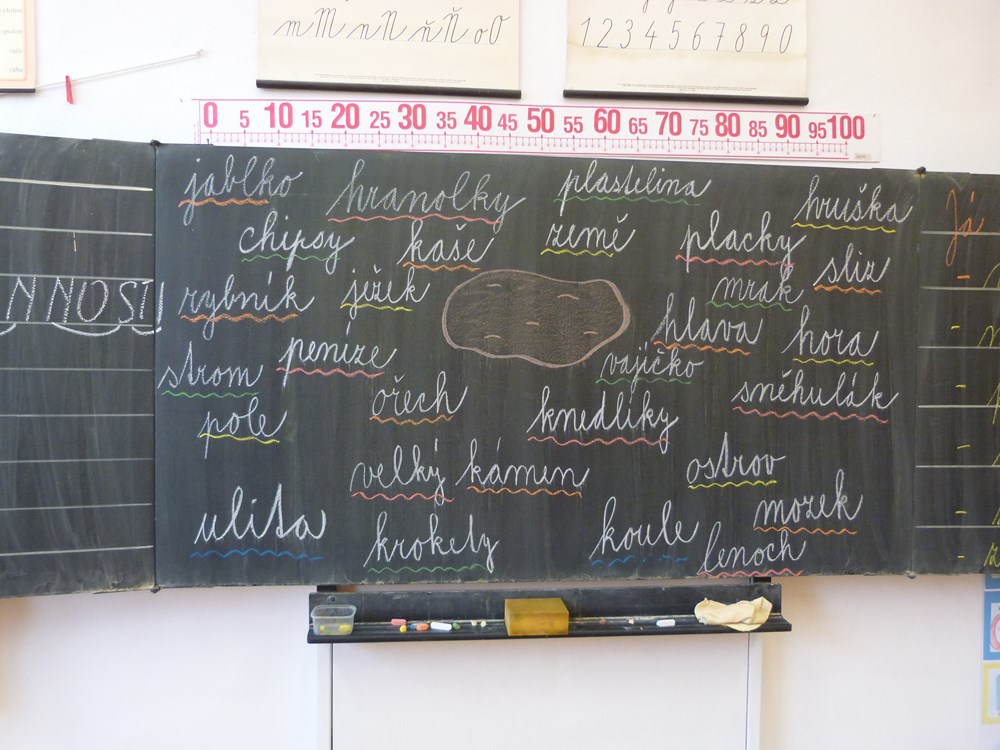 m M n N ň Ň o O
1 2 3 4 5 6 7 8 9 0
0 5 10 15 20 25 30 35 40 45 50 55 60 65 70 75 80 85 90 95 100
jablko hranolky plastelina hruška
chipsy kaše země placky sliz
rybník ježek mrak
hlava hora
strom peníze vajíčko
pole ořech knedlíky sněhulák
velký kámen ostrov
mozek
ulita krokety koule lenoch
NNOSI
Já